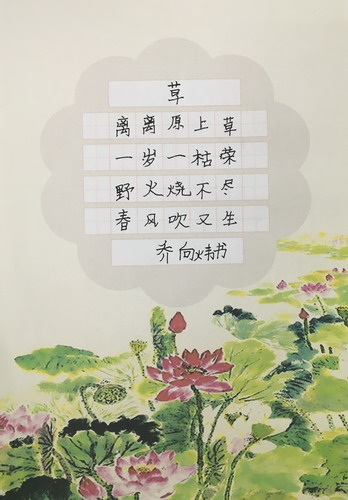 草
离离原上草
一岁一枯荣
野火烧不尽
春风吹又生
乔向炜书